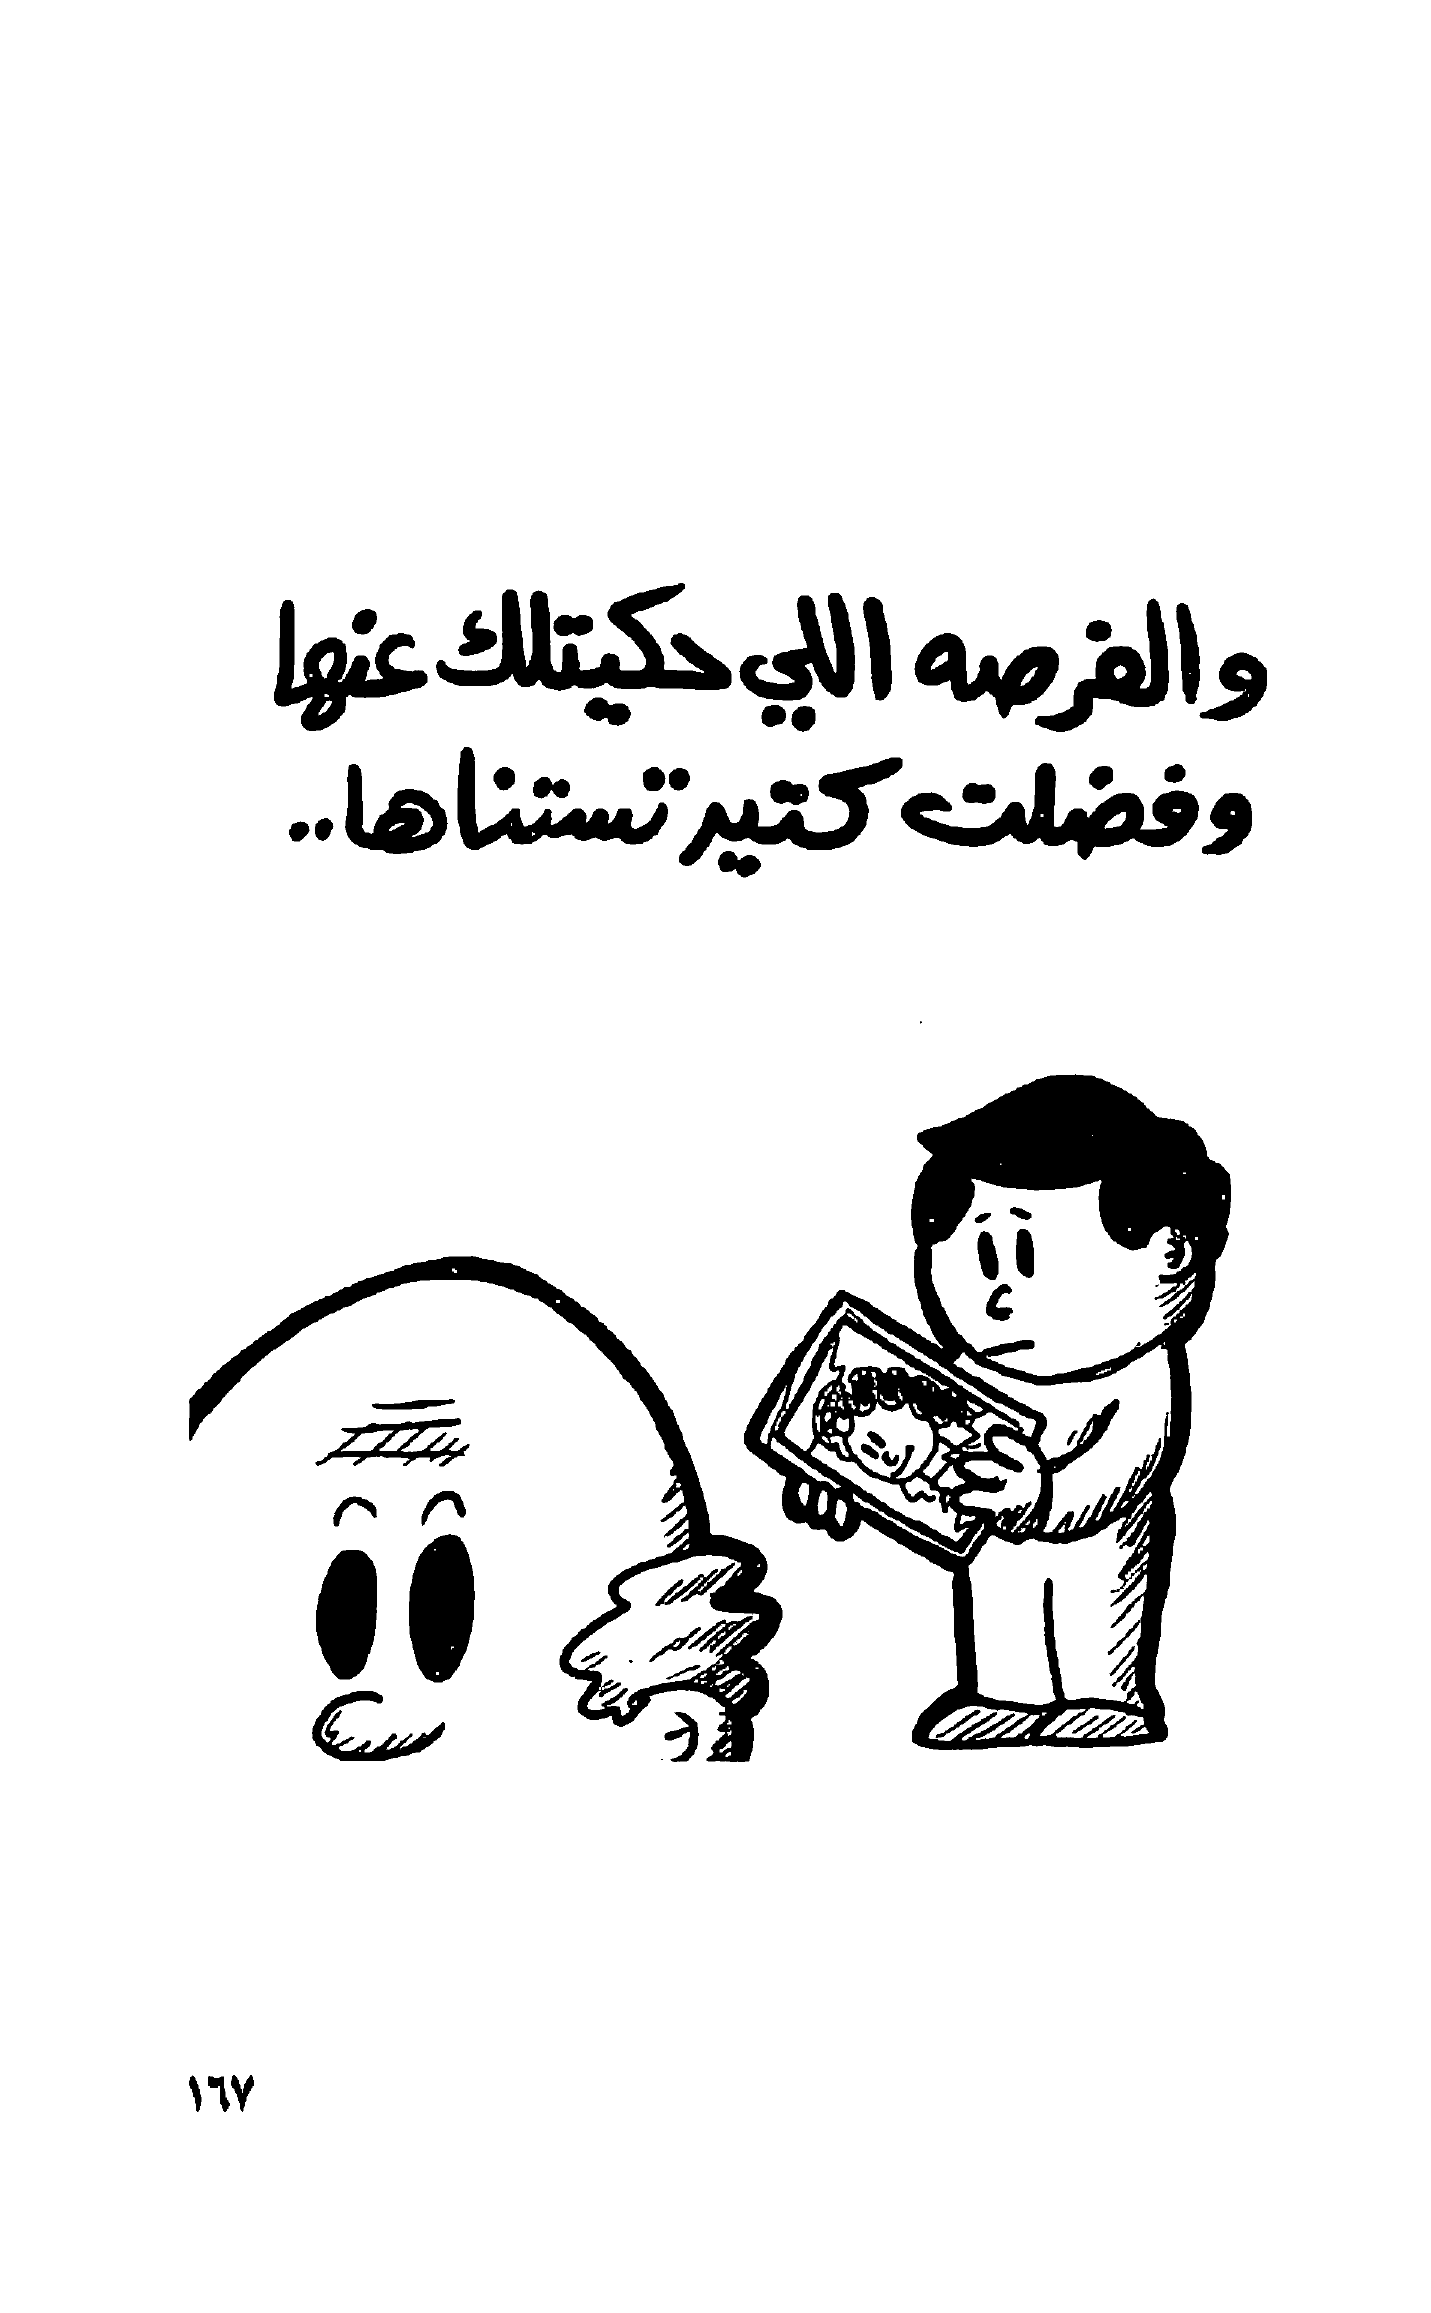 والفرصه اللي حكيتلك عنها
وفضلت كتير تستناها..
١٦٧